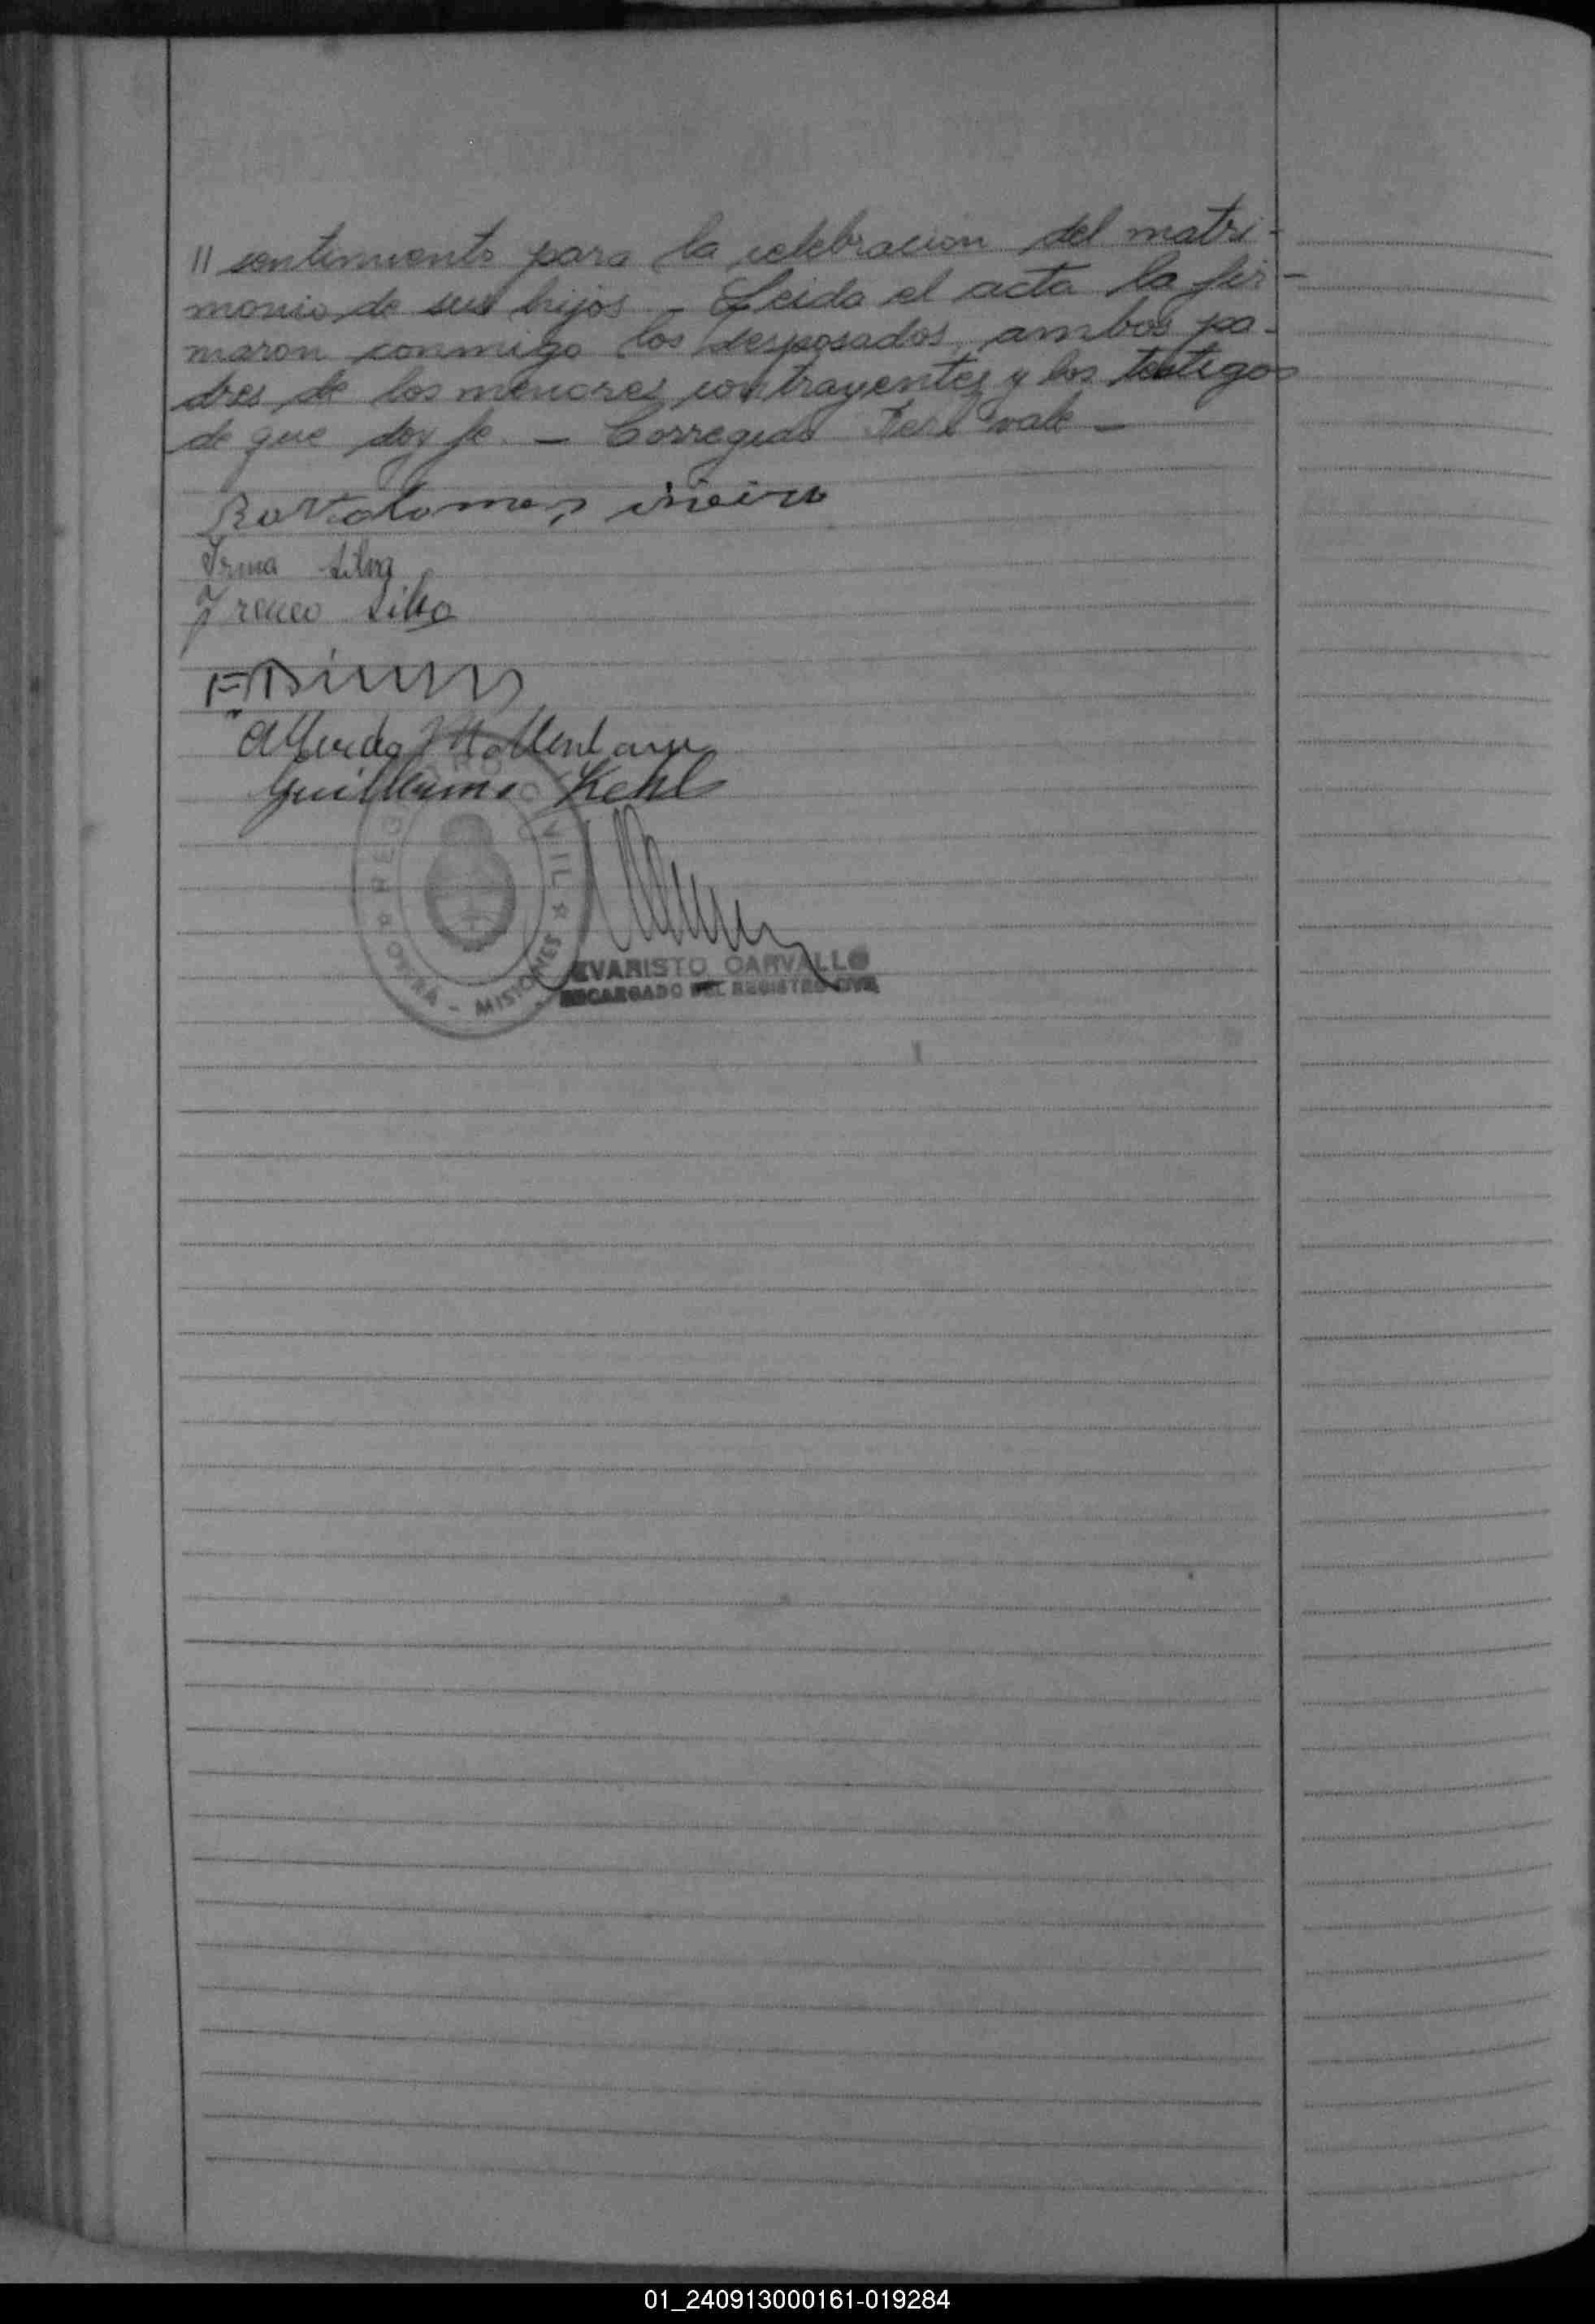 // sentimiento para la celebracion del matri-
monio de sus hijos - Leida el acta la fir-
maron conmigo los desposados, ambos pa-
dres de los menores contrayentes y los testigos
de que doy fe. - Corregido vale -
Irma Silva
Ireneo Silva
Alfredo
Guillermo Kehl
REGISTRO CIVIL
OBERA - MISIONES
EVARISTO CARVALLO
ENCARGADO DEL REGISTRO CIVIL
01_240913000161-019284